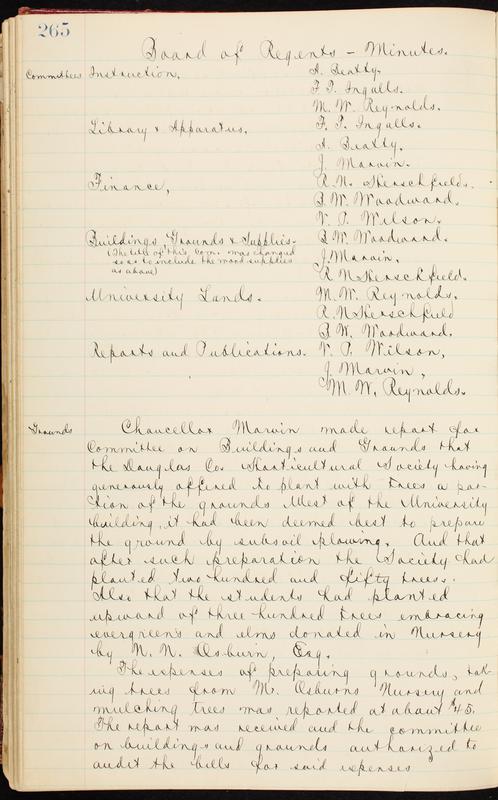 265
Board of Regents – Minutes.
Committees Instruction. A. Beatty.
F. T. Ingalls.
M. W. Reynolds.
Library & Apparatus. F. T. Ingalls.
A. Beatty.
J. Marvin.
Finance, R. N. Herschfields.
B. W. Woodward.
V. P. Wilson.
Buildings, Grounds & Supplies. B. W. Woodward.
(The title of this Com. was changed J. Marvin,
so as to include the word supplies
as above) R N Herschfield.
University Lands. M. W. Reynolds.
R. N Herschfield
B. W. Woodward.
Reports and Publications. V. P. Wilson,
J. Marvin,
M. W. Reynolds.
Grounds Chancellor Marvin made report for
Committee on Buildings and Grounds that
the Douglas Co. Horticultural Society having
generously offered to plant with trees a por-
tion of the grounds West of the University
building, it had been deemed best to prepare
the ground by subsoil plowing. And that
after such preparation the Society had
planted two hundred and fifty trees.
Also that the students had planted
upward of three-hundred trees embracing
evergreens and elms donated in Nursery
by N. N. Osburn, Esq.
The expenses of preparing grounds, tak-
ing trees from M. Osburns Nursery and
mulching trees was reported at about $45.
The report was received and the committee
on buildings and grounds authorized to
audit the bills for said expenses